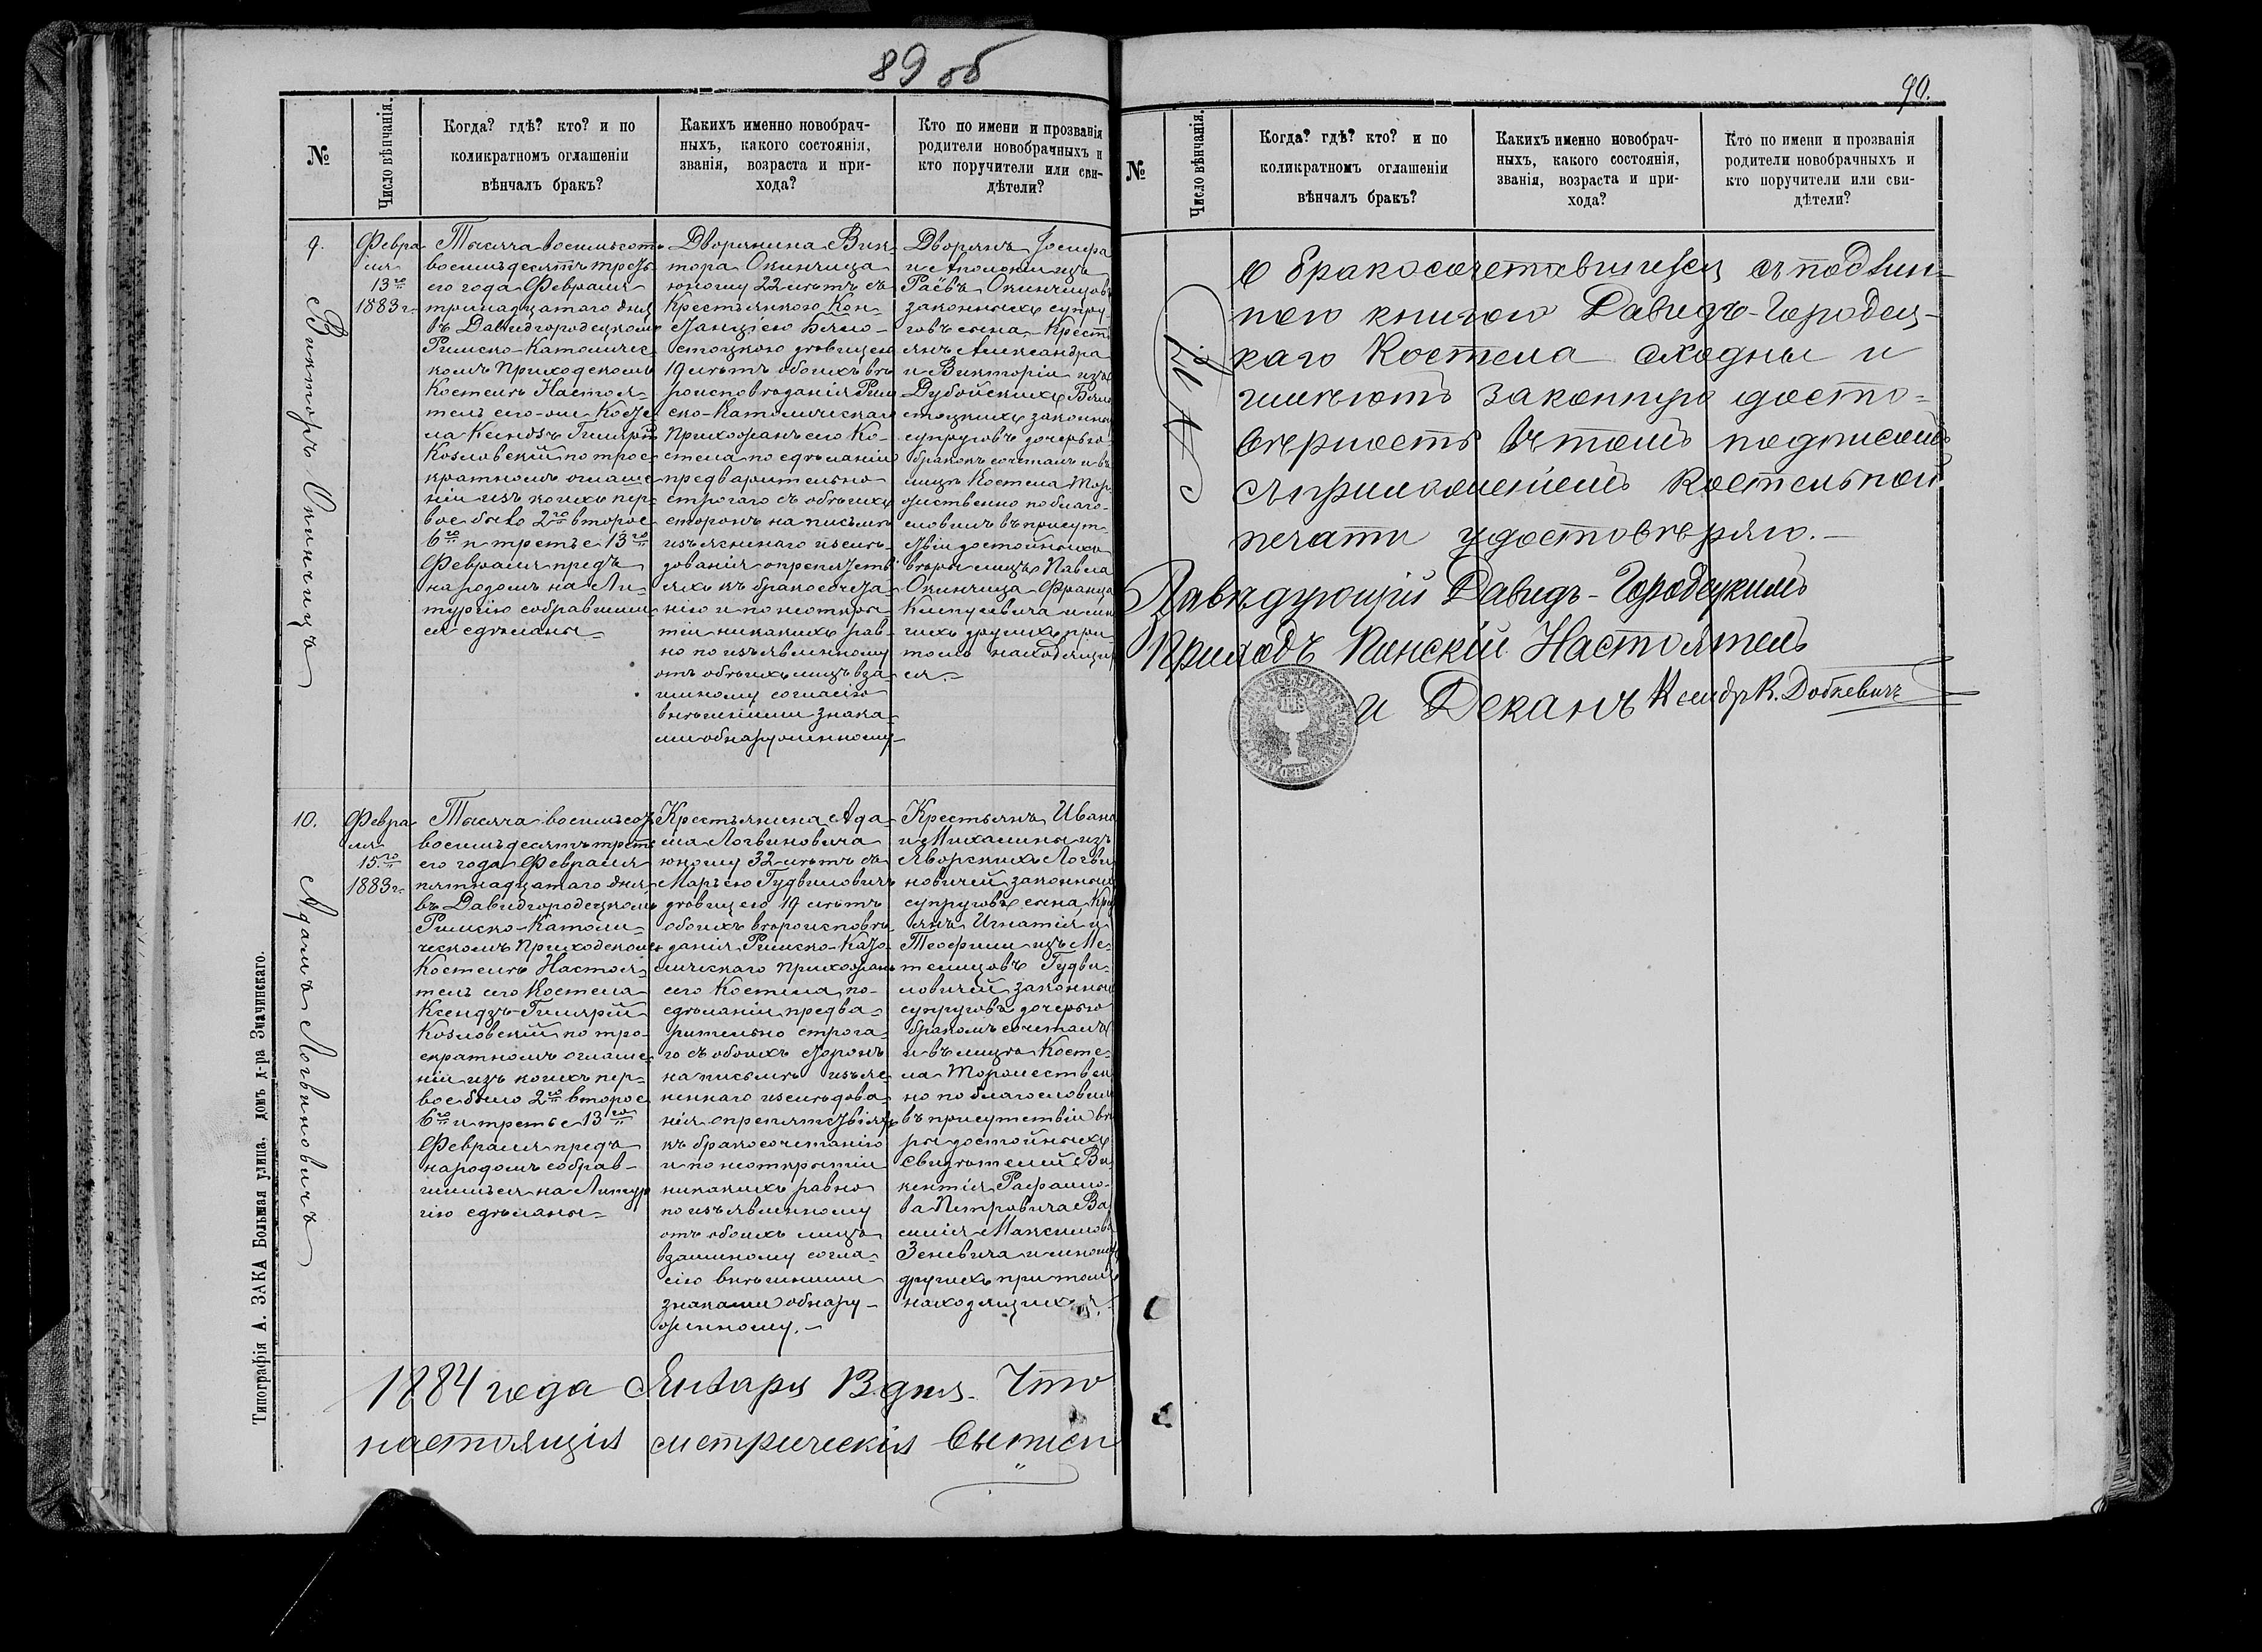 89 об
№
Число вѣнчанія.
Когда? гдѣ? кто? и по
коликратномъ оглашеніи
вѣнчалъ бракъ?
Какихъ именно новобрач-
ныхъ, какого состоянія,
званія, возраста и при-
хода?
Кто по имени и прозванія
родители новобрачныхъ и
кто поручители или сви-
дѣтели?
9.
Викторъ Окинчицъ
Февра
ля
13го
1883 г.
Тысяча восемьсотъ
восемьдесятъ треть-
его года Февраля
тринадцатаго дня
въ Давидгородецкомъ
Римско-Католичес
комъ Приходскомъ
Костелѣ Настоя-
тель сего-же Косте
ла Ксендзъ Гилярій
Козловскій по трое-
кратномъ оглаше
ніи изъ коихъ пер-
вое было 2го второе
6го и третье 13го
Февраля предъ
народомъ на Ли-
тургію собравшим
ся сдѣланы
Дворянина Вик-
тора Окинчица
юношу 22 лѣтъ съ
Крестьянкою Кон-
станціею Бѣло-
стоцкою дѣвицею
19 лѣтъ обоихъ вѣ
роисповѣданія Рим
ско-Католическаго
Прихожанъ сего Ко-
стела по сдѣланіи
предварительно
строгаго съ обѣихъ
сторонъ на письмѣ
изъясненнаго изслѣ-
дованія о препятстві
яхъ къ бракосочета-
нію и по неоткры-
тіи никакихъ рав-
но по изъявленному
отъ обѣихъ лицъ вза-
имному согласію
внѣшними знака-
ми обнаруженному
Дворянъ Іосифа
и Аполоніи изъ
Раёвъ Окинчицовъ
законныхъ супру-
говъ сына, Кресть
янъ Александра
и Викторіи изъ
Дубойскихъ Бѣло
стоцкихъ законныхъ
супруговъ дочерью
бракомъ сочеталъ и въ
лицѣ Костела Тор-
жественно поблаго-
словилъ въ присут-
ствіи достойныхъ
вѣры лицъ Павла
Окинчица Франца
и мно
гихъ другихъ при
томъ находящих
ся.
10.
Адамъ Логвиновичъ
Февра
ля
15го
1883 г.
Тысяча восемьсотъ
восемьдесятъ треть
его года Февраля
пятнадцатаго дня
въ Давидгородецкомъ
Римско-Католи-
ческомъ Приходскомъ
Костелѣ Настоя-
тель сего Костела
Ксендзъ Гилярій
Козловскій по тро-
екратномъ оглаше-
ніи изъ коихъ пер-
вое было 2го второе
6го и третье 13го
Февраля предъ
народомъ собрав-
шимъся на Литур
гію сдѣланы
Крестьянина Ада-
ма Логвиновича
юношу 32 лѣтъ съ
Марьею Гудвиловичъ
дѣвицею 19 лѣтъ
обоихъ вѣроисповѣ-
данія Римско-Като-
лическаго прихожанъ
сего Костела по
сдѣланіи предва-
рительно строга-
го съ обоихъ сторонъ
на письмѣ изъяс-
неннаго изслѣдова-
нія о препятствіяхъ
къ бракосочетанію
и по неоткрытіи
никакихъ равно
по изъявленному
отъ обоихъ лицъ
взаимному согла-
сію внѣшними
знаками обнару-
женному.
Крестьянъ Ивана
и Михалины изъ
Яворскихъ Логви
новичей законныхъ
супруговъ сына, Кре
янъ Игнатія и
Теофили изъ Ме-
телицовъ Гудви-
ловичей законныхъ
супруговъ дочерью
бракомъ сочеталъ
и въ лицѣ Косте-
ла Торжествен
но поблагословилъ
въ присутствіи вѣ
ры достойныхъ
Свидѣтелей Ви-
кентія Рафаило-
ва Петровича Ва
силія Максимова
Зеневича и многихъ
другихъ при томъ
находящихся.
1884 года Января 13 дня. Что
настоящія метрическія выписи
Типографія А. ЗАКА Большая улица. домъ д-ра Значинскаго.
90.
№
Число вѣнчанія.
Когда? гдѣ? кто? и по
коликратномъ оглашеніи
вѣнчалъ бракъ?
Какихъ именно новобрач-
ныхъ, какого состоянія,
званія, возраста и при-
хода?
Кто по имени и прозванія
родители новобрачныхъ и
кто поручители или сви-
дѣтели?
о бракосочетавшихся съ подлин-
ною книгою Давидъ-Городец-
каго Костела сходны и
имѣютъ законную досто-
вѣрность въ томъ подписомъ
съ приложеніемъ Костельной
печати удостовѣряю.
Завѣдующій Давидъ-Городецкимъ
Приходъ Пинскій Настоятель
и Деканъ Ксендз К. Добкевичъ